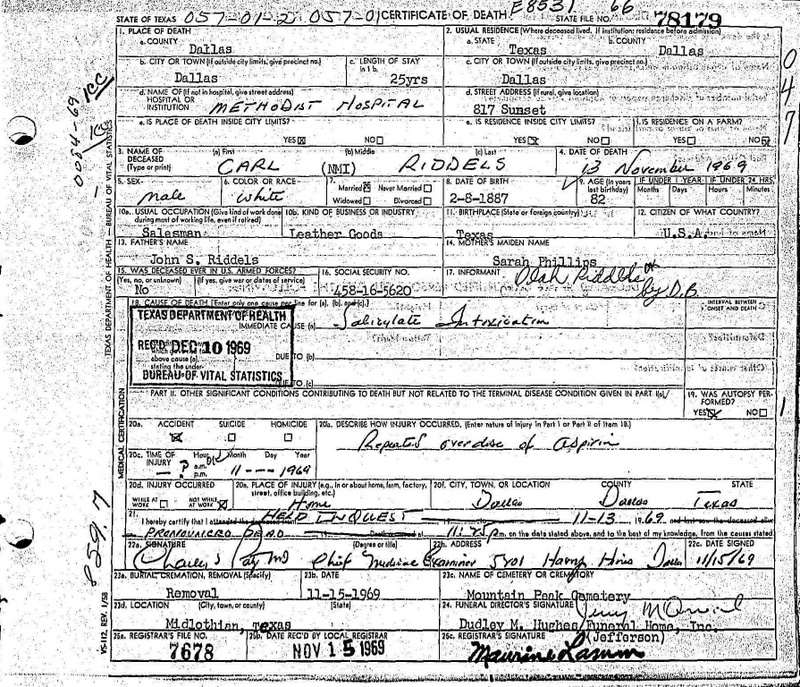 STATE OF TEXAS 057-01-2 057-01 CERTIFICATE OF DEATH E8531 66 STATE FILE NO. 78179
1. PLACE OF DEATH
a. COUNTY
Dallas
2. USUAL RESIDENCE (Where deceased lived. If institution: residence before admission)
a. STATE
Texas
b. COUNTY
Dallas
b. CITY OR TOWN (If outside city limits, give precinct no.)
Dallas
c. LENGTH OF STAY
in 1 b.
25yrs
c. CITY OR TOWN (If outside city limits, give precinct no.)
Dallas
d. NAME OF (If not in hospital, give street address)
HOSPITAL OR
INSTITUTION
METHODIST HOSPITAL
d. STREET ADDRESS (If rural, give location)
817 Sunset
e. IS PLACE OF DEATH INSIDE CITY LIMITS?
YES NO
e. IS RESIDENCE INSIDE CITY LIMITS?
YES NO
f. IS RESIDENCE ON A FARM?
YES NO
3. NAME OF
DECEASED
(Type or print)
(a) First
CARL
(b) Middle
(NMI)
(c) Last
RIDDELS
4. DATE OF DEATH
13 November 1969
5. SEX
male
6. COLOR OR RACE
white
7.
Married Never Married
Widowed Divorced
8. DATE OF BIRTH
2-8-1887
9. AGE (In years
last birthday)
82
IF UNDER 1 YEAR
Months Days
IF UNDER 24 HRS.
Hours Minutes
10a. USUAL OCCUPATION (Give kind of work done
during most of working life, even if retired)
Salesman
10b. KIND OF BUSINESS OR INDUSTRY
Leather Goods
11. BIRTHPLACE (State or foreign country)
Texas
12. CITIZEN OF WHAT COUNTRY?
U.S.A.
13. FATHER'S NAME
John S. Riddels
14. MOTHER'S MAIDEN NAME
Sarah Phillips
15. WAS DECEASED EVER IN U.S. ARMED FORCES?
(Yes, no, or unknown) (If yes, give war or dates of service)
No
16. SOCIAL SECURITY NO.
458-16-5620
17. INFORMANT
Riddels
by D.B.
18. CAUSE OF DEATH [Enter only one cause per line for (a), (b), and (c).]
INTERVAL BETWEEN
ONSET AND DEATH
IMMEDIATE CAUSE (a)
Salicylate Intoxication
TEXAS DEPARTMENT OF HEALTH
REC'D DEC 10 1969
BUREAU OF VITAL STATISTICS
above cause (a)
stating the under-
DUE TO (b)
DUE TO (c)
PART II. OTHER SIGNIFICANT CONDITIONS CONTRIBUTING TO DEATH BUT NOT RELATED TO THE TERMINAL DISEASE CONDITION GIVEN IN PART I(a)
19. WAS AUTOPSY PER-
FORMED?
YES NO
20a. ACCIDENT SUICIDE HOMICIDE
20b. DESCRIBE HOW INJURY OCCURRED. (Enter nature of injury in Part I or Part II of item 18.)
Repeated overdose of aspirin
20c. TIME OF
INJURY
Hour Month Day Year
a.m.
p.m.
? 11 --- 1969
20d. INJURY OCCURRED
WHILE AT
WORK
NOT WHILE
AT WORK
20e. PLACE OF INJURY (e.g., in or about home, farm, factory,
street, office building, etc.)
Home
20f. CITY, TOWN, OR LOCATION COUNTY STATE
Dallas Dallas Texas
21.
I hereby certify that I attended the deceased HELD INQUEST 11-13 1969 and last saw the deceased alive
PRONOUNCED DEAD m. on the date stated above, and to the best of my knowledge, from the causes stated
22a. SIGNATURE (Degree or title)
Charles MD Chief Medical Examiner
22b. ADDRESS
5201 Harry Hines Dallas
22c. DATE SIGNED
11/15/69
23a. BURIAL, CREMATION, REMOVAL (Specify)
Removal
23b. DATE
11-15-1969
23c. NAME OF CEMETERY OR CREMATORY
Mountain Peak Cemetery
23d. LOCATION (City, town, or county) (State)
Midlothian, Texas
24. FUNERAL DIRECTOR'S SIGNATURE
Dudley M. Hughes Funeral Home, Inc.
(Jefferson)
25a. REGISTRAR'S FILE NO.
7678
25b. DATE REC'D BY LOCAL REGISTRAR
NOV 15 1969
25c. REGISTRAR'S SIGNATURE
Maurine
TEXAS DEPARTMENT OF HEALTH — BUREAU OF VITAL STATISTICS
MEDICAL CERTIFICATION
VS-112, REV. 1/58
0084-69
1CC
859.7
047
1